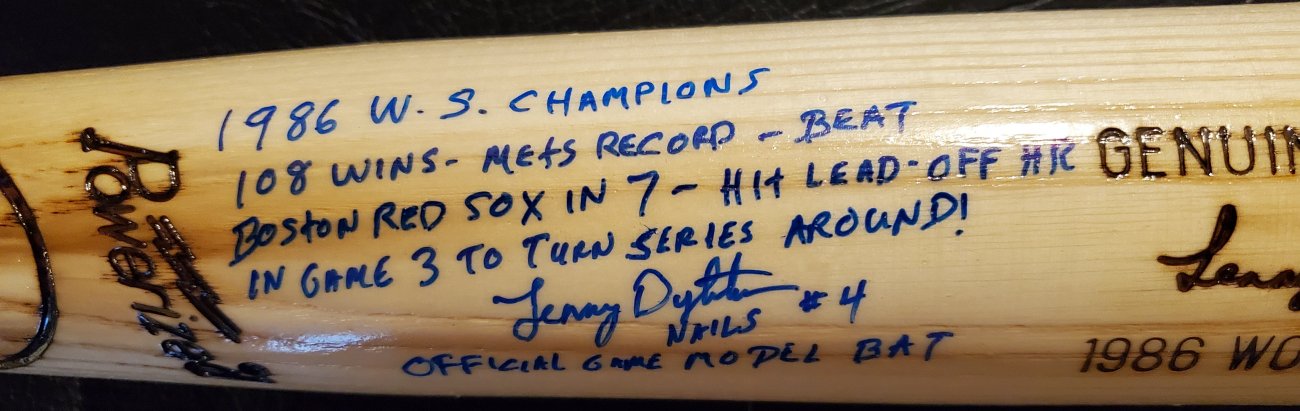 1986 W. S. CHAMPIONS
108 WINS - METS RECORD - BEAT
BOSTON RED SOX IN 7 - HIT LEAD-OFF HR
IN GAME 3 TO TURN SERIES AROUND!
Lenny Dykstra #4
NAILS
OFFICIAL GAME MODEL BAT
Powerized
GENUIN
Lenny
1986 WO